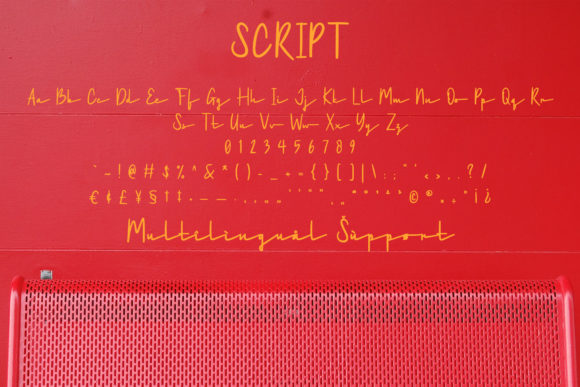 SCRIPT
Aa Bb Cc Dd Ee Ff Gg Hh Ii Jj Kk Ll Mm Nn Oo Pp Qq Rr
Ss Tt Uu Vv Ww Xx Yy Zz
0 1 2 3 4 5 6 7 8 9
` ~ ! @ # $ % ^ & * ( ) - _ + = { } [ ] | \ : ; " ' < > , . ? /
€ ¢ £ ¥ § † ‡
Multilinguàl Šùpport